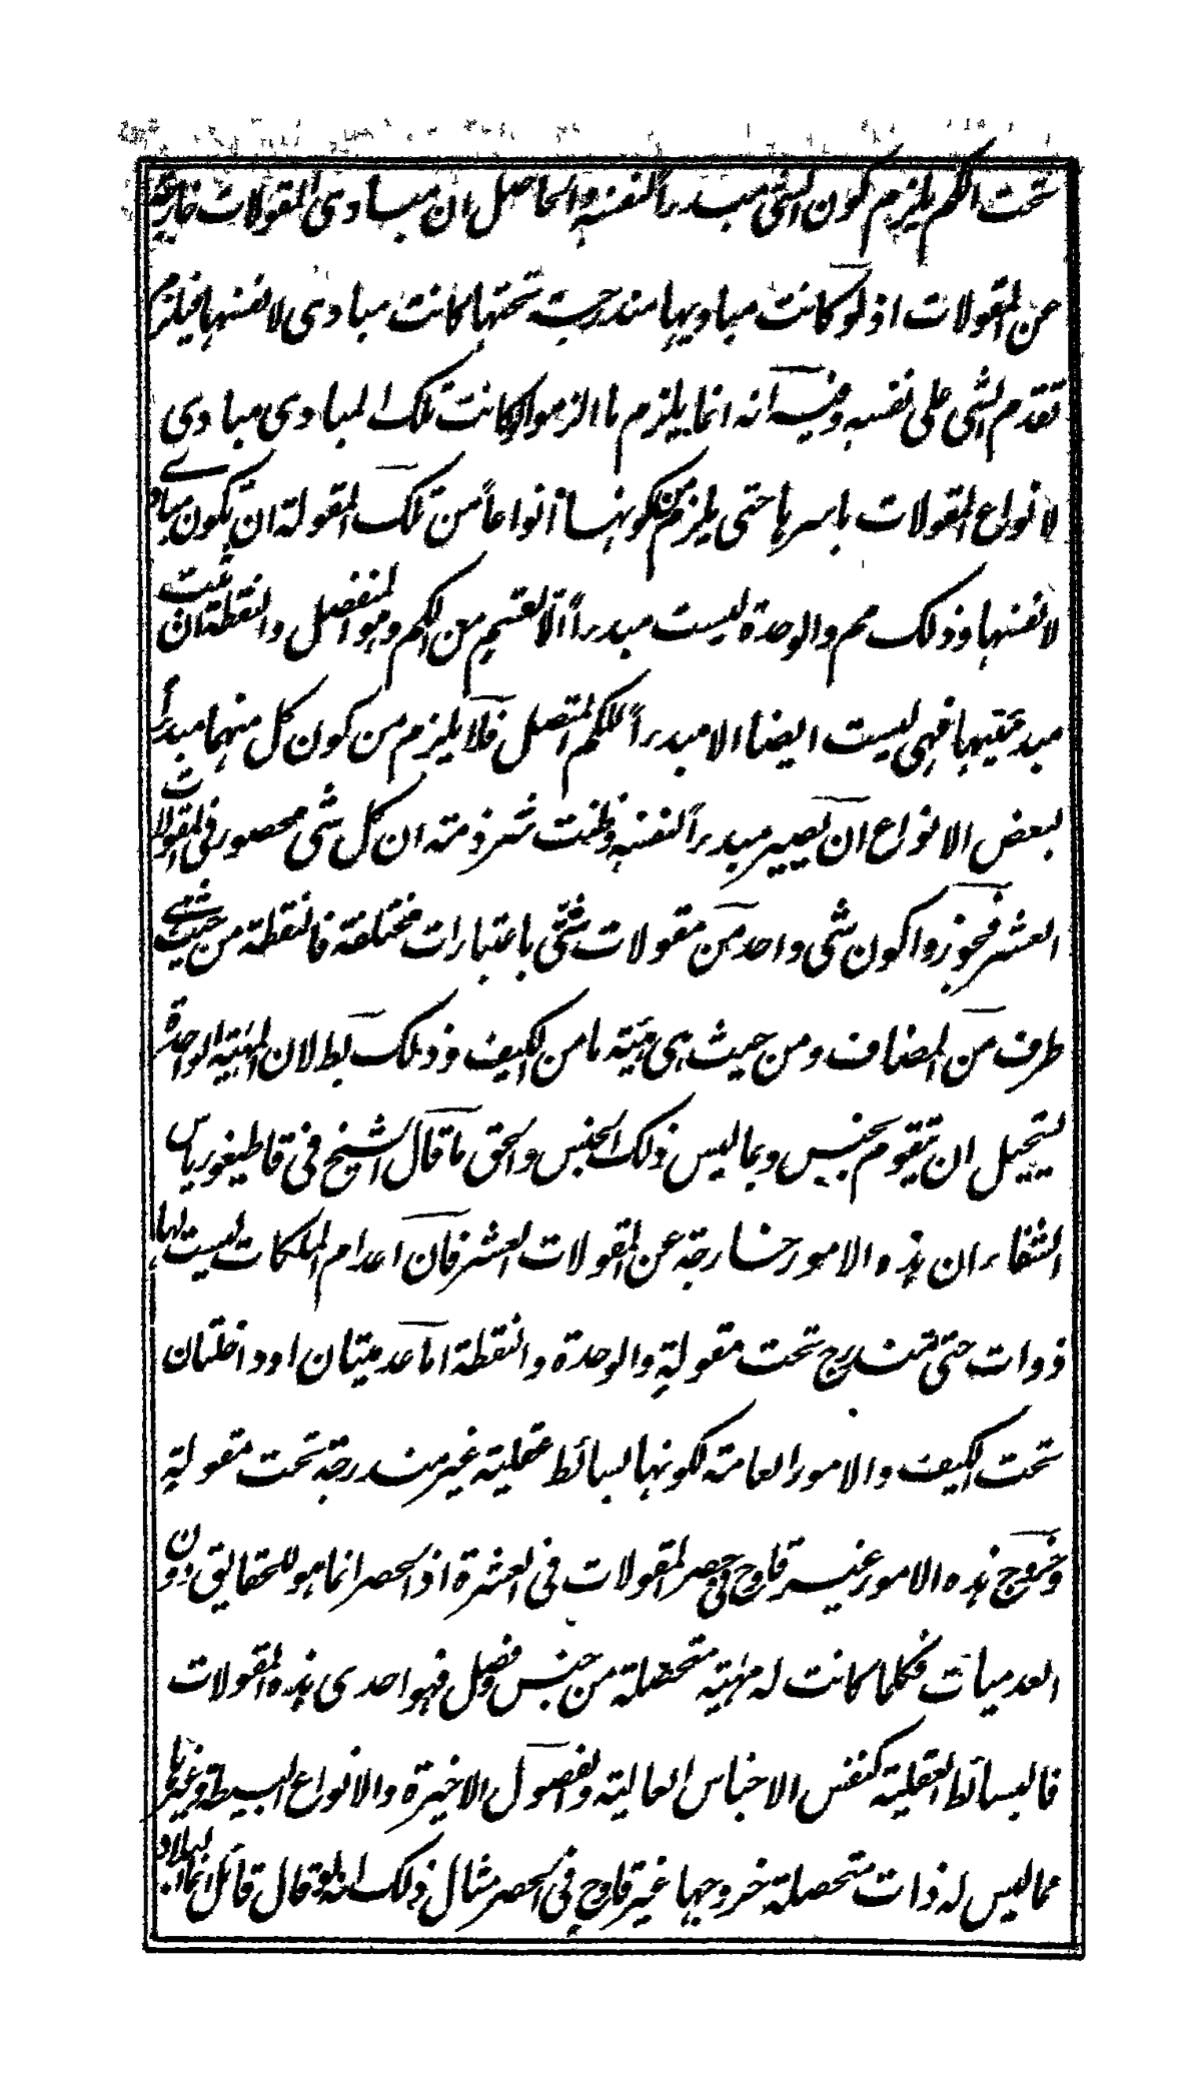 تحت الكم يلزم كون الشئ مبدءاً لنفسه والحاصل ان مبادى المقولات خارجة
من المقولات اذ لو كانت مباديها مندرجة تحتها كانت مبادى لانفسها فيلزم
تقدم الشئ على نفسه وفيه انه انما يلزم ما الزموا لو كانت تلك المبادى مبادى
لانواع المقولات باسرها حتى يلزم من كونها انواعاً من تلك المقولة ان يكون مبادى
لانفسها وذلك مم والوحدة ليست مبدءاً الا لقسم من الكم وهو المنفصل والنقطة ان ثبت
مبدئيتها فهى ليست ايضا الا مبدءاً للكم المتصل فلا يلزم من كون كل منهما مبدءاً
لبعض الانواع ان يصير مبدءاً لنفسه وظنت شرذمة ان كل شئ محصور فى المقولات
العشر فجوزوا كون شئ واحد من مقولات شتى باعتبارات مختلفة فالنقطة من حيث هى
طرف من المضاف ومن حيث هى هيئة ما من الكيف وذلك بط لان المهية الواحدة
يستحيل ان تتقوم بجنس وبما ليس ذلك الجنس والحق ما قال الشيخ فى قاطيغورياس
الشفاء ان هذه الامور خارجة عن المقولات العشر فان اعدام الملكات ليست لها
ذوات حتى تندرج تحت مقولة والوحدة والنقطة اما عدميتان او داخلتان
تحت الكيف والامور العامة لكونها بسائط عقلية غير مندرجة تحت مقولة
وخروج هذه الامور غير قادح فى حصر المقولات فى العشرة اذ الحصر انما هو للحقايق دون
العدميات فكلما كانت له مهية متحصلة من جنس وفصل فهو احدى هذه المقولات
فالبسائط العقلية كنفس الاجناس العالية والفصول الاخيرة والانواع البسيطة وغيرها
مما ليس له ذات متحصلة خروجها غير قادح فى الحصر مثال ذلك انه لو قال قائل انما البلاد